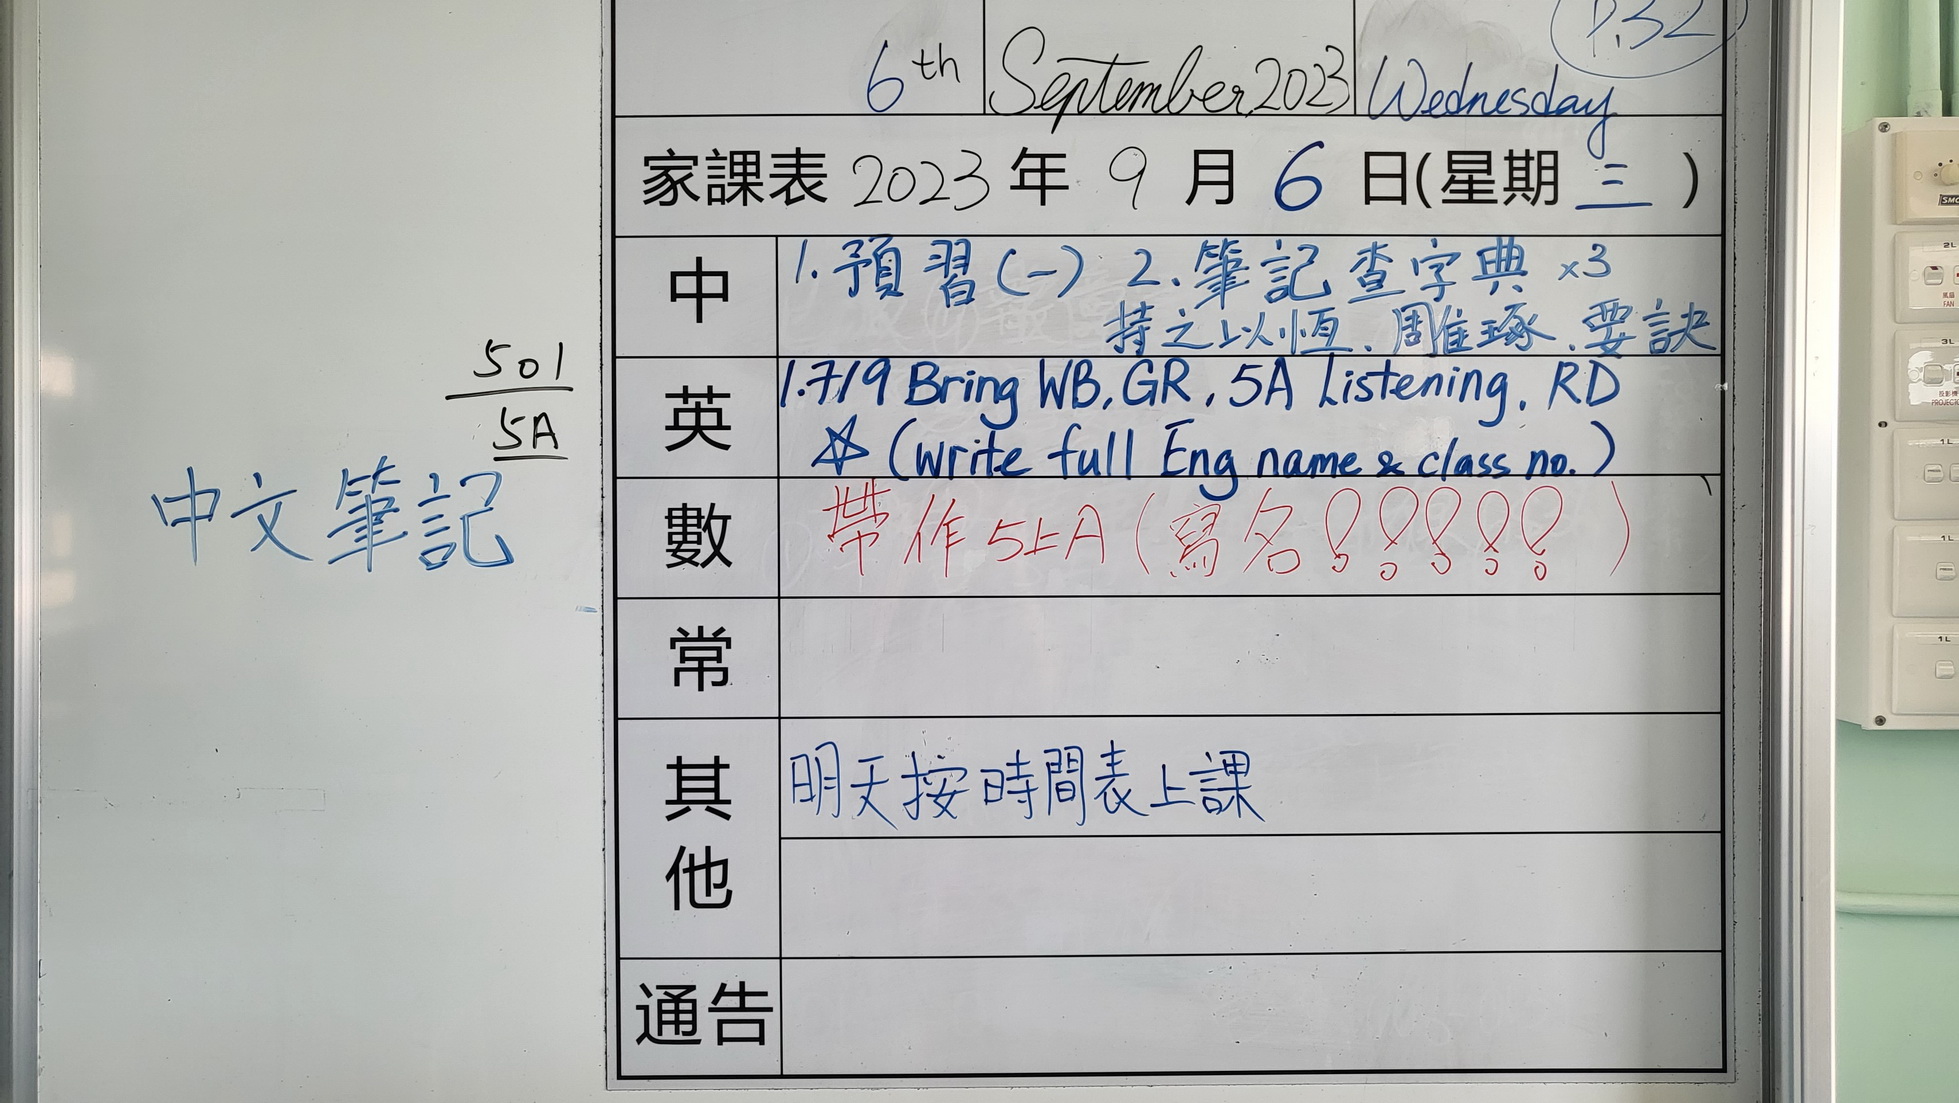 P.32
6th September, 2023 Wednesday
家課表 2023 年 9 月 6 日(星期 三 )
中 1. 預習(一) 2. 筆記查字典 ×3
持之以恆、雕琢、要訣
英 1. 7/9 Bring WB, GR, 5A Listening, RD
☆ (Write full Eng name & class no.)
數 帶作5上A (寫名!!!!!)
常
其他 明天按時間表上課
通告
501
5A
中文筆記
SMC
2L
風扇
FAN
3L
1L
1L
1L